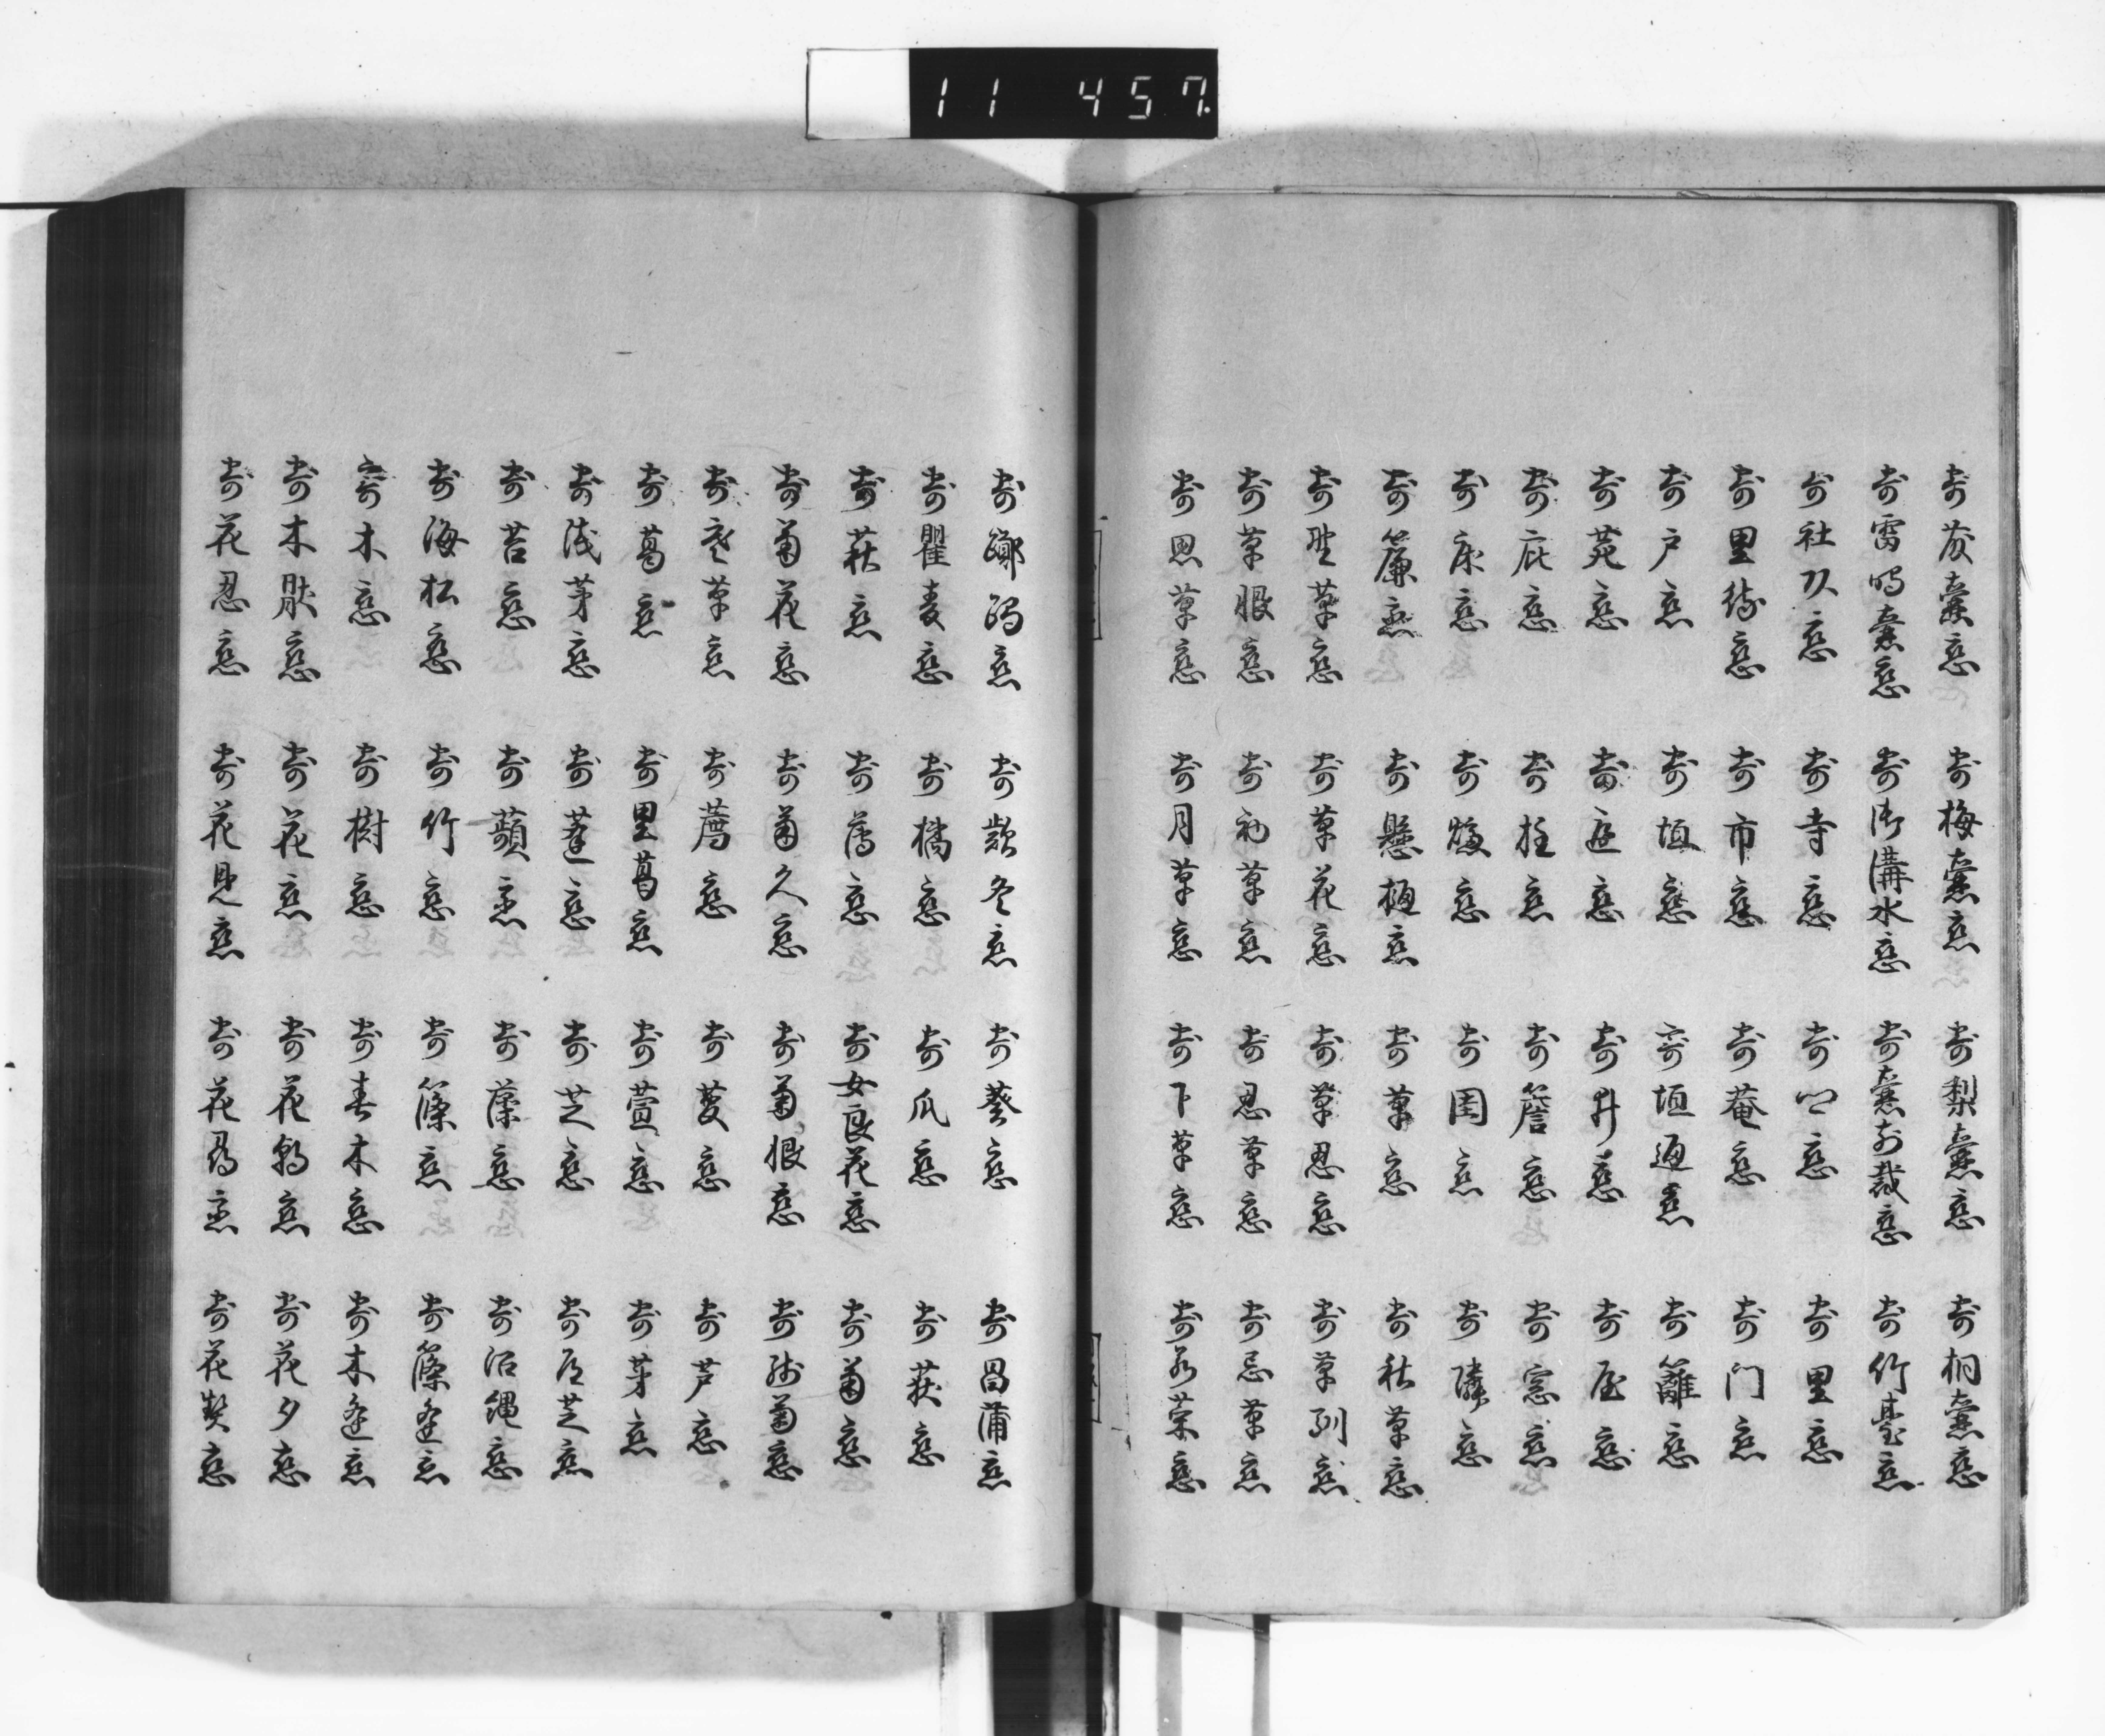 11 457
寄藤壺恋 寄梅壺恋 寄梨壺恋 寄桐壺恋
寄雷鳴壺恋 寄御溝水恋 寄壺前栽恋 寄竹台恋
寄社久恋 寄寺恋 寄 恋 寄里恋
寄里待恋 寄市恋 寄菴恋 寄门恋
寄戸恋 寄垣恋 寄垣通恋 寄籬恋
寄苑恋 寄庭恋 寄井恋 寄屋恋
寄庇恋 寄柱恋 寄簷恋 寄窓恋
寄床恋 寄 恋 寄閨恋 寄隣恋
寄簾恋 寄懸樋恋 寄草恋 寄秋草恋
寄野草恋 寄草花恋 寄草忍恋 寄草別恋
寄草恨恋 寄初草恋 寄忍草恋 寄忘草恋
寄思草恋 寄月草恋 寄下草恋 寄若菜恋
寄躑躅恋 寄款冬恋 寄葵恋 寄昌蒲恋
寄瞿麦恋 寄橘恋 寄瓜恋 寄荻恋
寄萩恋 寄薄恋 寄女良花恋 寄菊恋
寄菊花恋 寄菊久恋 寄菊恨恋 寄残菊恋
寄 草恋 寄薦恋 寄菱恋 寄芦恋
寄葛恋 寄里葛恋 寄萱恋 寄茅恋
寄浅茅恋 寄蓬恋 寄芝恋 寄道芝恋
寄苔恋 寄蘋恋 寄藻恋 寄沼縄恋
寄海松恋 寄竹恋 寄篠恋 寄篠逢恋
寄木恋 寄樹恋 寄春木恋 寄木逢恋
寄木厭恋 寄花恋 寄花朝恋 寄花夕恋
寄花忍恋 寄花見恋 寄花尋恋 寄花契恋